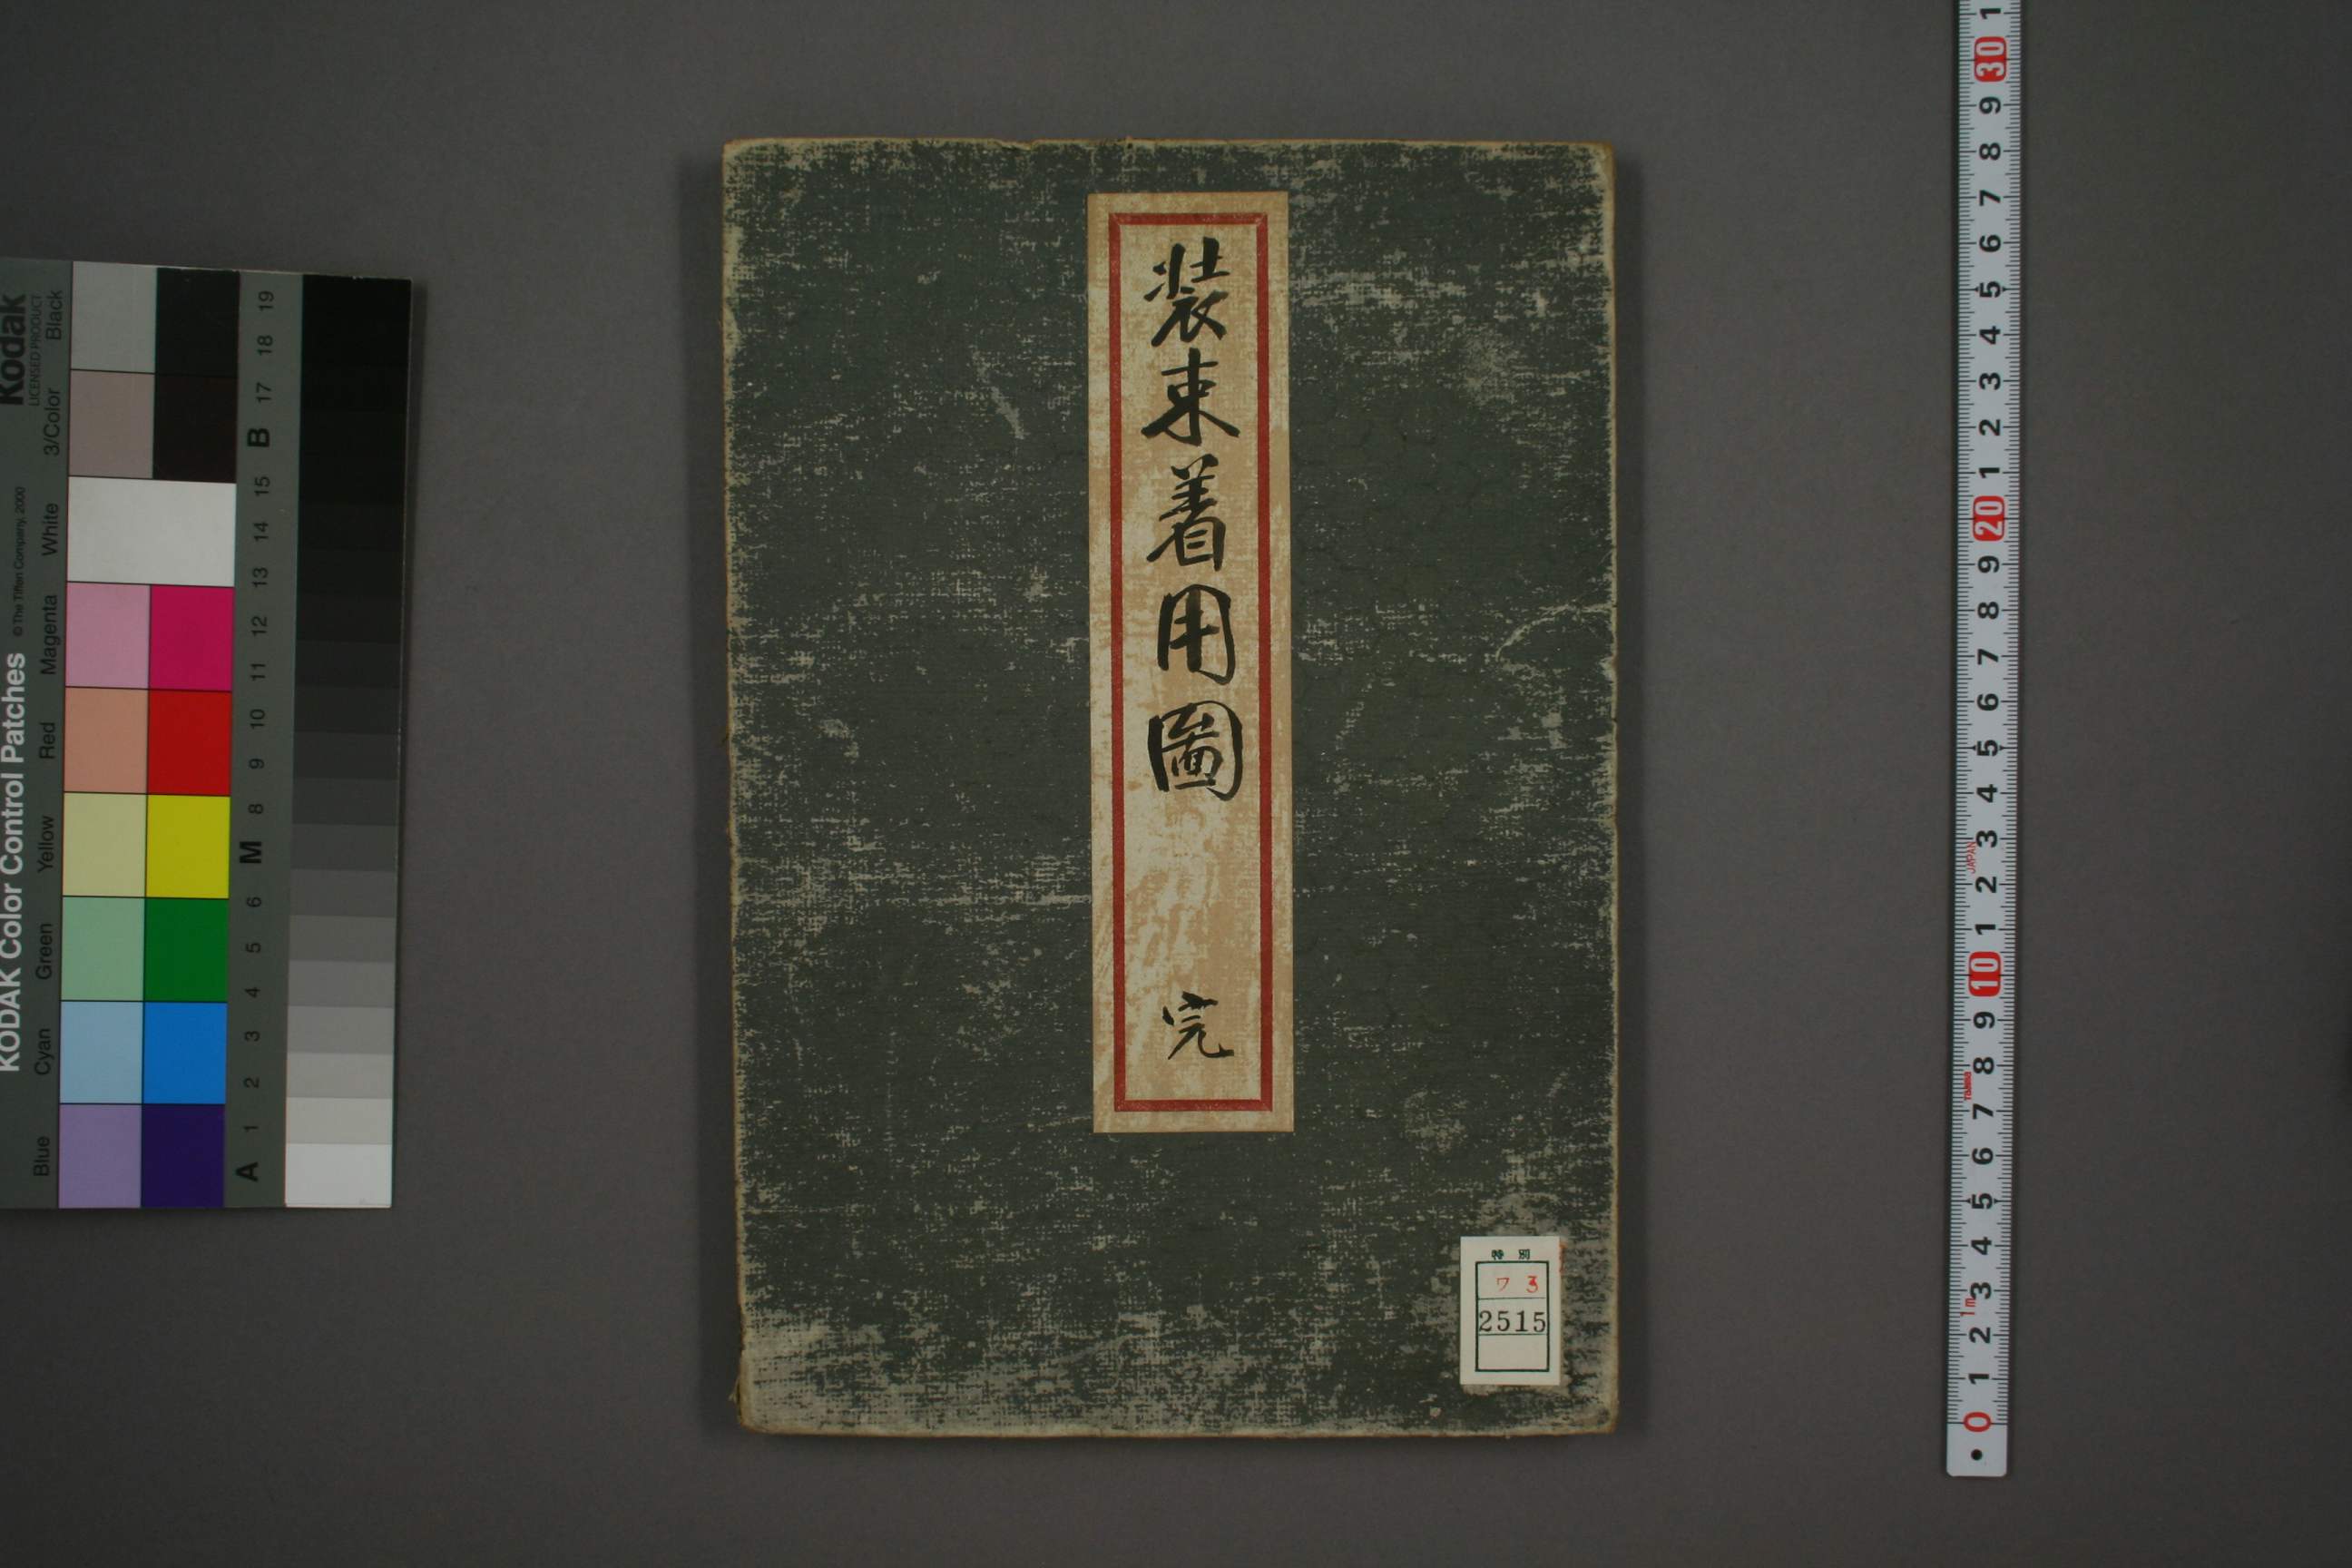 装束着用圖
完
特別
ワ 3
2515
KODAK Color Control Patches © The Tiffen Company, 2000 Kodak
LICENSED PRODUCT
Blue Cyan Green Yellow Red Magenta White 3/Color Black
A 1 2 3 4 5 6 M 8 9 10 11 12 13 14 15 B 17 18 19
0 1 2 3 4 5 6 7 8 9 10 1 2 3 4 5 6 7 8 9 20 1 2 3 4 5 6 7 8 9 30 1
1m
JAPAN